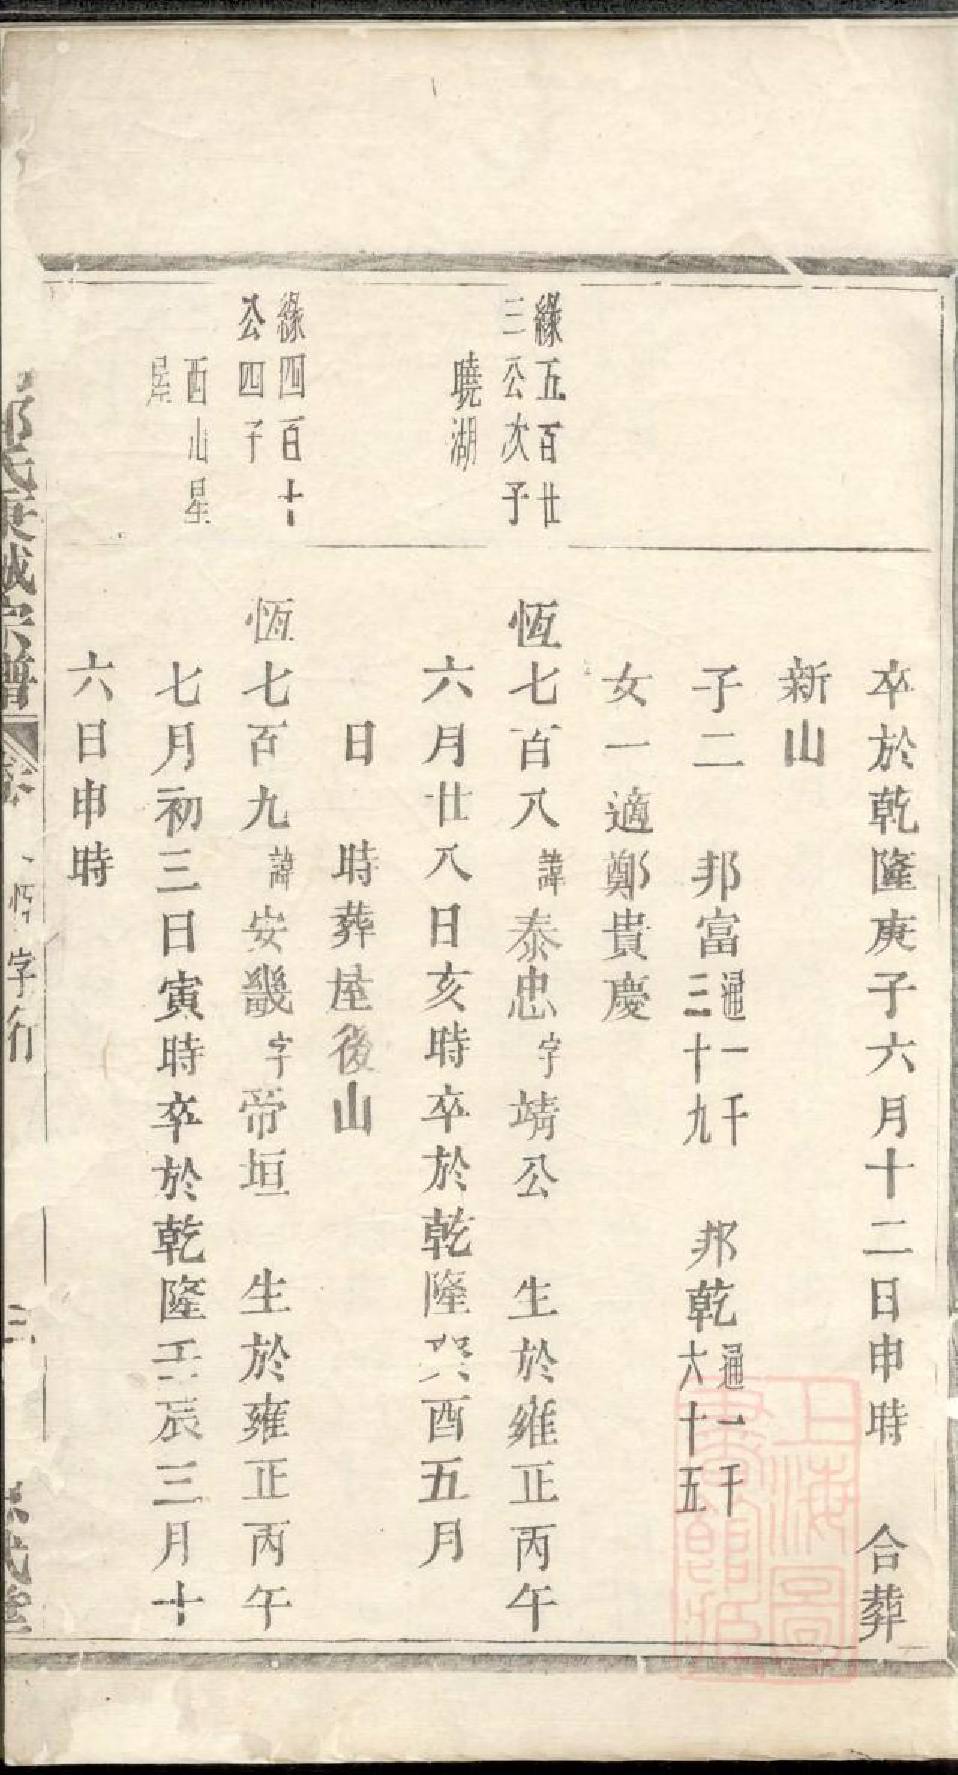 卒於乾隆庚子六月十二日申時　合葬
新山
子二　邦富通一千三十九　邦乾通一千六十五
女一適鄭貴慶
緣五百廿
三公次子
曉湖
恆七百八諱泰忠字靖公　生於雍正丙午
六月廿八日亥時卒於乾隆癸酉五月
日　時葬屋後山
緣四百十
公四子
西山星
恆七百九諱安畿字帝垣　生於雍正丙午
七月初三日寅時卒於乾隆壬辰三月十
六日申時
氏 宗譜
恆字行
三
上海圖書館藏